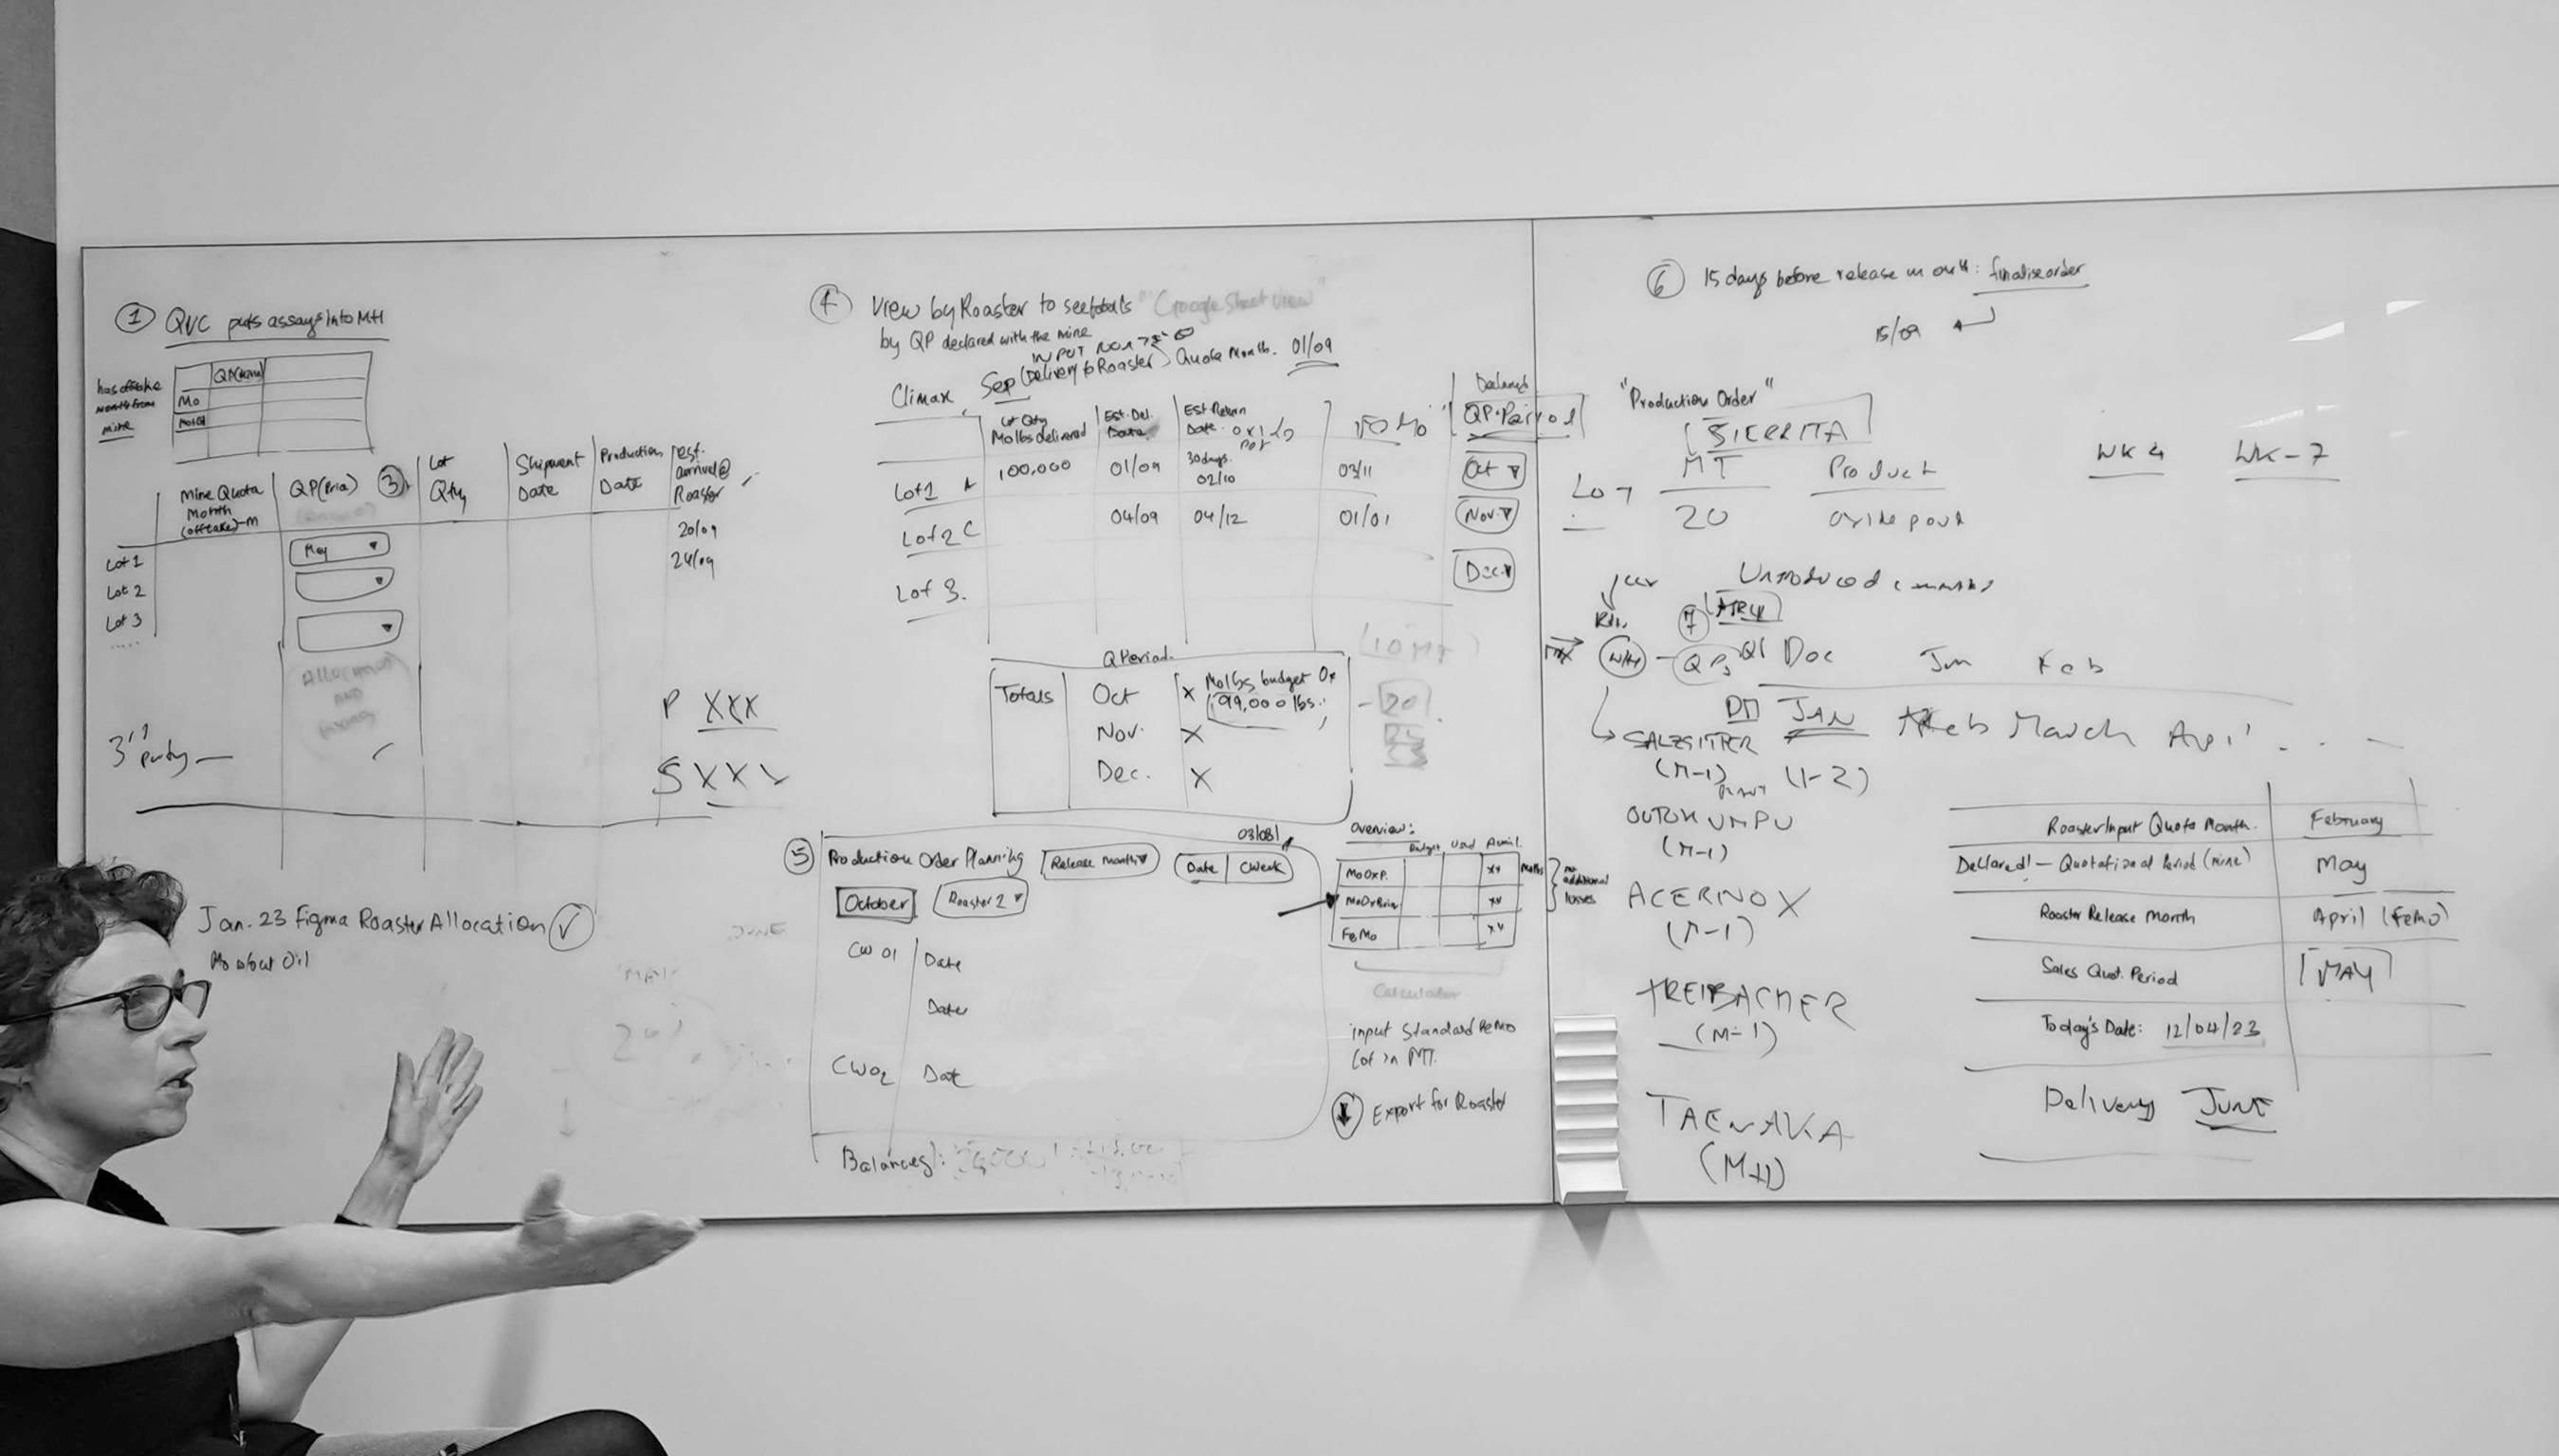 ① QVC puts assays into MH
has offtake
month from
mine
QP(Mine)
Mo
Mine Quota
Month
(offtake)-M
QP(Pria)
③
Lot
Qty
Shipment
Date
Production
Date
est.
arrival@
Roaster
20/09
24/09
Lot 1
May
Lot 2
Lot 3
.....
ALLOCATION
AND
3rd party
P XXX
S XXX
Jan. 23 Figma Roaster Allocation ✓
Mo w/out Oil
④ View by Roaster to see totals "Google Sheet View"
by QP declared with the mine
INPUT MONTH
Climax, Sep (Delivery to Roaster) Quota Month. 01/09
Lot Qty
Mo lbs delivered
Est. Del.
Date
Est. Return
Date
30 days.
FeMo
Declared
QP-Period
Lot 1
100,000
01/09
02/10
03/11
Oct
Lot 2 C
04/09
04/12
01/01
Nov.
Lot 3.
Dec.
(10 MT)
QPeriod.
Totals
Oct X Mo lbs budget Ox
99,000 lbs.
Nov. X
Dec. X
20
⑤ Production Order Planning
Release month
03/08/
Date | CWeek
October
Roaster 2
CW 01
Date
Date
CW02
Date
Balances:
Overview:
Budget Used Avail.
MoOxP. XX
MoOxBriq XX
FeMo XX
Mo lbs
no
additional
losses
Calculator
input Standard FeMo
Lot in MT.
Export for Roaster
⑥ 15 days before release month: finalise order
15/09
"Production Order"
SIERRITA
MT Product
Lot 20
WK 4 WK-7
⑦
Dec Jan Feb
JAN Feb March April . . .
SALZGITTER
(M-1) (1-2)
OUTOKUMPU
(M-1)
ACERINOX
(M-1)
TREIBACHER
(M-1)
TAENAKA
(M+1)
Roaster Input Quota Month. February
Declared! - Quotational Period (mine) May
Roaster Release Month April (FeMo)
Sales Quot. Period MAY
Today's Date: 12/04/23
Delivery JUNE